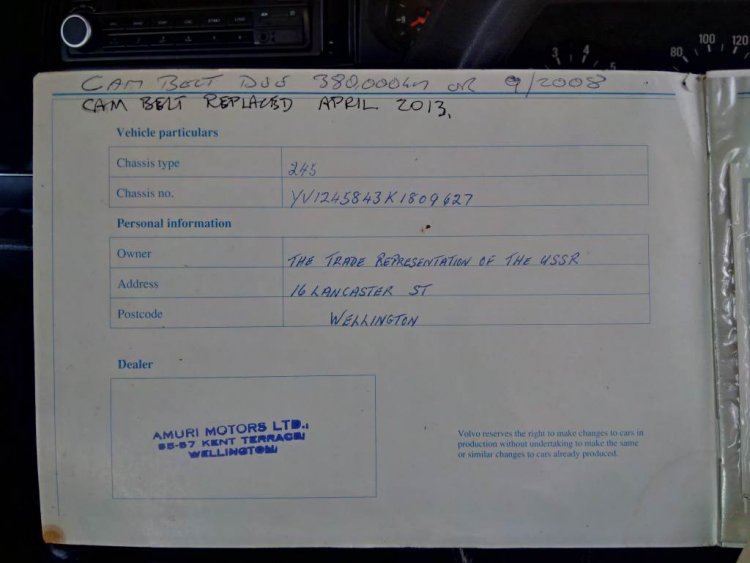 3 4 5
80 100 120
CAM BELT DUE 380,000km OR 9/2008
CAM BELT REPLACED APRIL 2013.
Vehicle particulars
Chassis type 245
Chassis no. YV1245843K1809627
Personal information
Owner THE TRADE REPRESENTATION OF THE USSR
Address 16 LANCASTER ST
Postcode WELLINGTON
Dealer
AMURI MOTORS LTD.:
KENT TERRACE
WELLINGTON
Volvo reserves the right to make changes to cars in
production without undertaking to make the same
or similar changes to cars already produced.